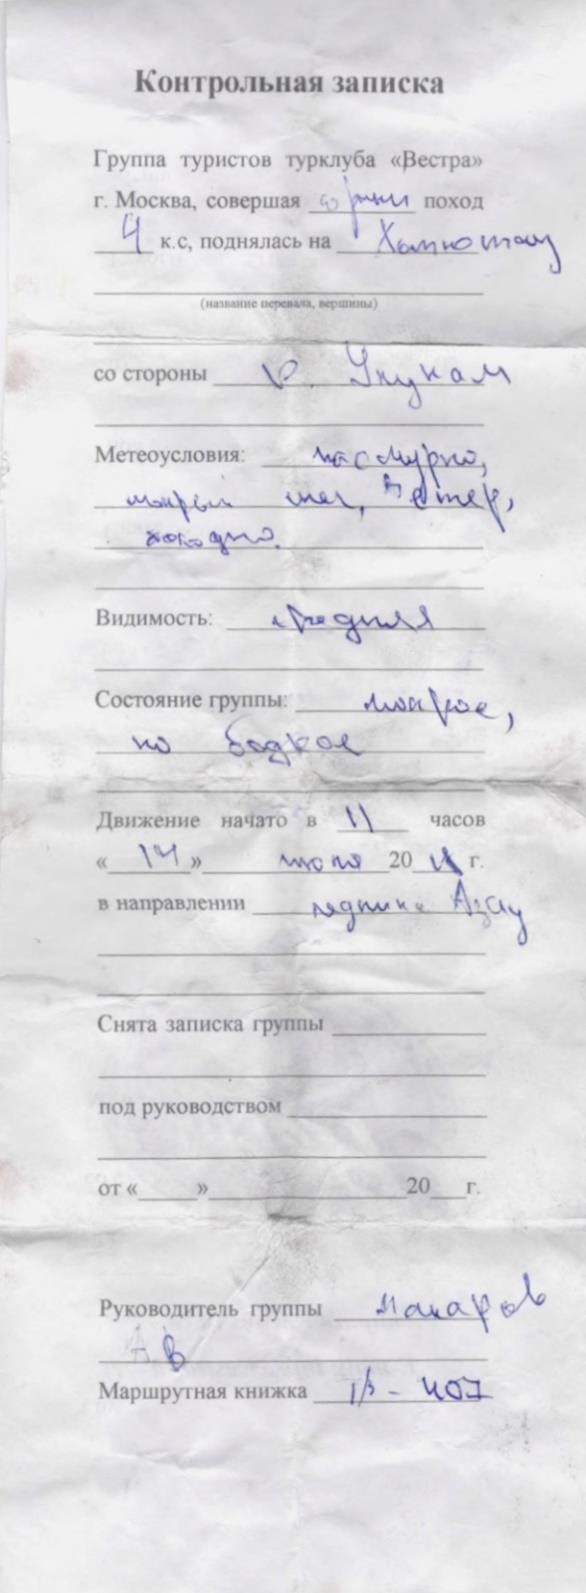 Контрольная записка
Группа туристов турклуба «Вестра»
г. Москва, совершая горный поход
4 к.с, поднялась на Хотютау
(название перевала, вершины)
со стороны р. Уллукам
Метеоусловия: пасмурно,
мокрый снег, ветер,
холодно.
Видимость: средняя
Состояние группы: мокрое,
но бодрое
Движение начато в 11 часов
«14» июля 20 г.
в направлении ледника Азау
Снята записка группы
под руководством
от « » 20 г.
Руководитель группы Макаров
А В
Маршрутная книжка 1/3-407